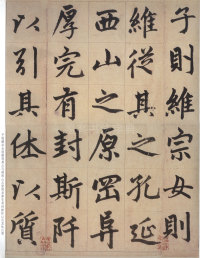 子則維宗女則
維從其之孔延
西山之原岡导
厚完有封斯阡
以引其休以質